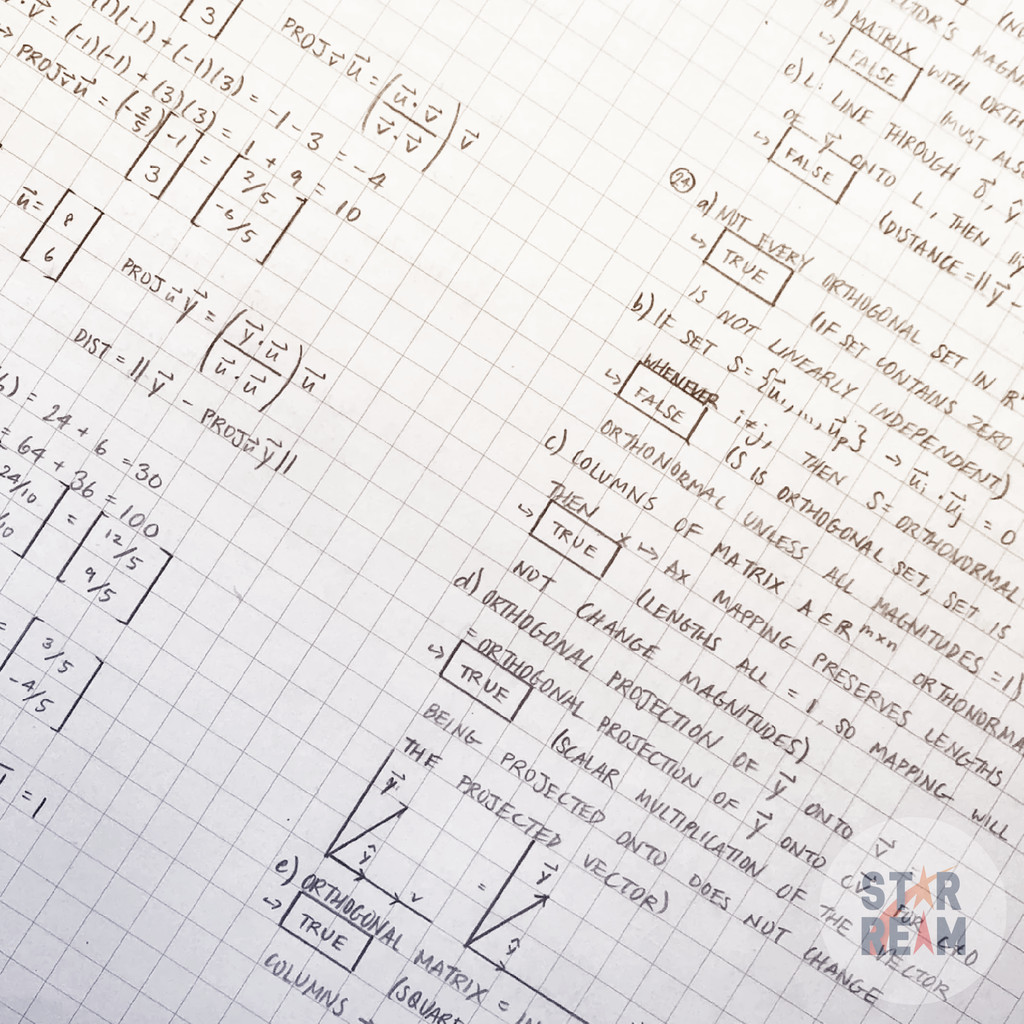 3
(1)(-1) + (-1)(3) = -1 - 3 = -4
(-1)(-1) + (3)(3) = 1 + 9 = 10
PROJv⃗ u⃗ = (-2/5) [-1 3] = [2/5 -6/5]
PROJv⃗ u⃗ = (u⃗·v⃗ / v⃗·v⃗) v⃗
u⃗ = [8 6]
PROJu⃗ y⃗ = (y⃗·u⃗ / u⃗·u⃗) u⃗
DIST = ||y⃗ - PROJu⃗ y⃗||
= 24 + 6 = 30
= 64 + 36 = 100
24/10
= [12/5 9/5]
= [3/5 -4/5]
= 1
MATRIX WITH
FALSE (MUST ALSO
e) L: LINE THROUGH 0⃗, ŷ
OF y⃗ ONTO L, THEN
FALSE (DISTANCE = ||y⃗ -
24 a) NOT EVERY ORTHOGONAL SET IN
TRUE (IF SET CONTAINS ZERO
IS NOT LINEARLY INDEPENDENT)
b) IF SET S = {u⃗1,..., u⃗p} → u⃗i · u⃗j = 0
WHENEVER i≠j, THEN S = ORTHONORMAL
FALSE (S IS ORTHOGONAL SET, SET IS
ORTHONORMAL UNLESS ALL MAGNITUDES = 1)
c) COLUMNS OF MATRIX A ∈ R m×n ORTHONORMAL
THEN x ↦ Ax MAPPING PRESERVES LENGTHS
TRUE (LENGTHS ALL = 1, SO MAPPING WILL
NOT CHANGE MAGNITUDES)
d) ORTHOGONAL PROJECTION OF y⃗ ONTO v⃗
= ORTHOGONAL PROJECTION OF y⃗ ONTO FOR
TRUE (SCALAR MULTIPLICATION OF THE VECTOR
BEING PROJECTED ONTO DOES NOT CHANGE
THE PROJECTED VECTOR)
y⃗
ŷ
v
=
y⃗
ŷ
e) ORTHOGONAL MATRIX =
TRUE (SQUARE
COLUMNS
STAR
REAM